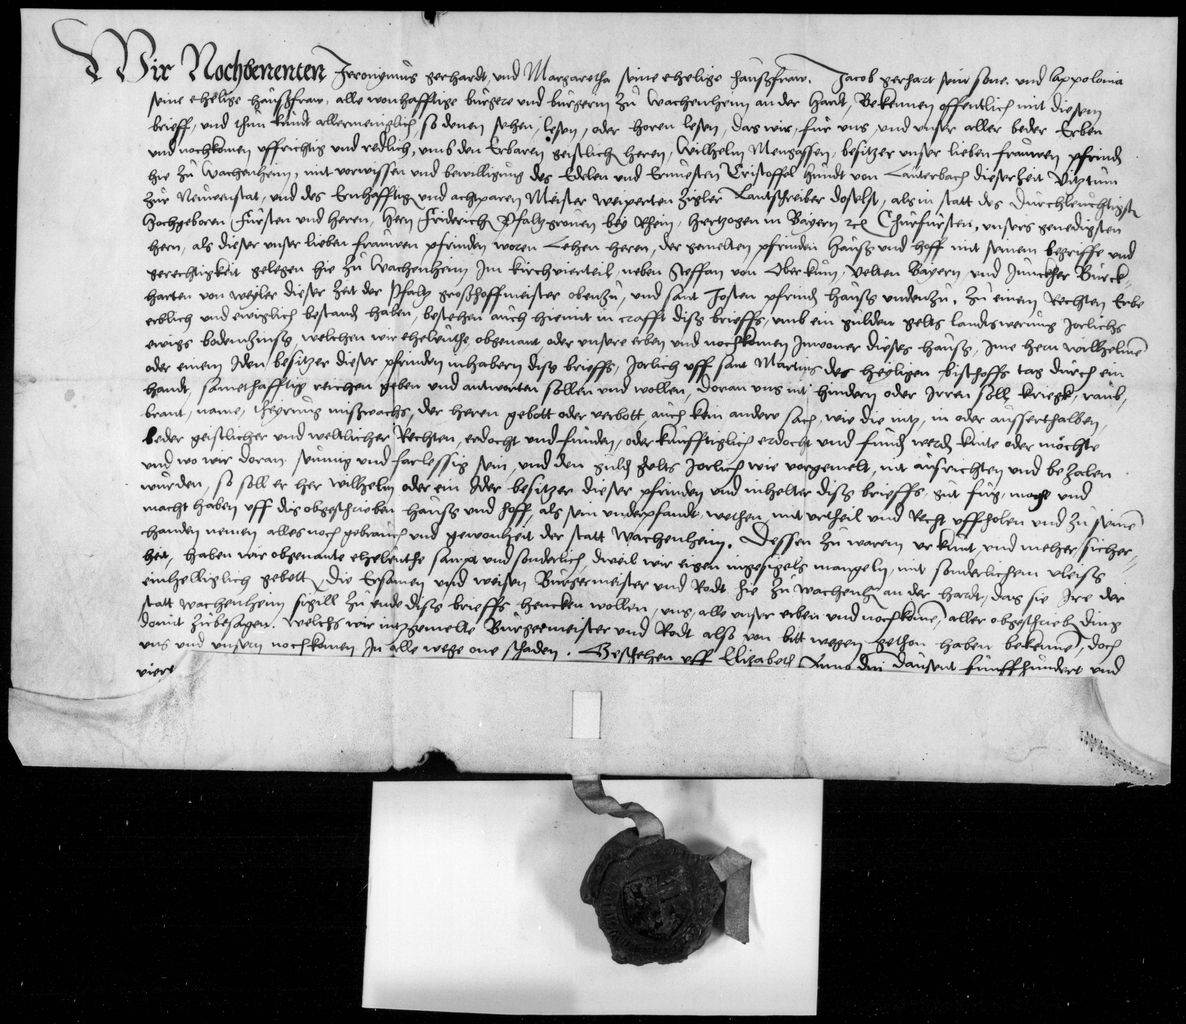 Wir Nochbenenten Jheronymus gerhardt, und Margaretha seine ehelige haußfraw. Jacob gerhart sein sone. und Appolonia
seine ehelige haußfraw, alle wonhafftige burger und burgerin zu Wachenheim an der Hardt, Bekennen offentlich mit diesem
brieff, und thun kundt allermeniglich, so denen sehen, lesen, oder horen lesen, das wir, fur uns, und unser aller beder Erben
und nochkomen uffrichtig und redlich, umb den Erbaren geistlich heren, Wilhelm Mengassen, besitzer unser lieben frauwen pfrund
hie zu Wachenheim, mit vorwissen und bewilligung des Edelen und Ernvesten Cristoffel hundt von Lauterbach dieserzeit Vitztum
zur Neuwenstat, und des Ernhafftig und achtparen Meister Weiperten Zigler Lantschreiber doselbst, als in statt des durchleuchtigst
Hochgeboren Fursten und heren, Hern Friderich Pfaltzgraven bey Rhein, hertzogen in Bayern Churfursten, unsers genedigsten
hern, als dieser unser lieben frauwen pfrunden woren Lehen heren, der gemelten pfrunden hauß und hoff mit seinem begriffe und
gerechtigkeit gelegen hie zu Wachenheim Im kirchvierteil, neben Steffan von Oberkum, Velten Bayern, und Junckher Burck-
harten von weyler dieser zeit der Pfaltz großhoffmeister obenzu, und sant Josten pfrund hauß undenzu, zu einem Rechten Erbe
erblich und ewiglich bestand haben, bestehen auch hiemit in crafft diß brieffs, umb ein gulden gelts landswerung Jorlichs
ewigs bodenzinß, welchen wir eheleuthe, obgenant oder unsere erben und nochkomen Inwoner dieses hauß, Ime hern wilhelmen
oder einem Iden besitzer dieser pfrunden inhabern diß brieffs, Jorlich uff sant Martins des heyligen bischoffs tag durch ein
handt, samethafftig reichen geben und antworten sollen und wollen, doran uns nit hindern oder Irren soll kriegk, raub,
brant, name, heerung mißwachs, der heren gebott oder verbott auch kein ander sach, wie die itz, in oder ausserthalben,
beder geistlicher und weltlicher Rechten, erdocht und funden, oder kunfftiglich erdocht und fund werd kunte oder mochte
und wo wir doran seumig und farlessig sein, und den guld gelts Jorlich wie vorgemelt, nit ausrichten und bezalen
wurden, so soll er her wilhelm oder ein Ider besitzer dieser pfrunden und inhelter diß brieffs, gut fug, mage und
macht haben uff dis obgeschrieben hauß und hoff, als sein underpfandt, wethen, mit urtheil und Recht uffholen und zu seinen
handen nemen alles noch gebrauch und gewonheit der statt Wachenheim. Dessen zu warem urkunt, und meher sicher-
heit, haben wir obgenante eheleuthe sampt und sonderlich, dweil wir eigen ingesigels mangeln, mit sonderlichem vleiß
einhelliglich gebett, die Ersamen und weisen Burgermeister und Rodt hie zu Wachenh an der hardt, das sie Ire der
statt Wachenheim sigill zu ende diß brieffs hencken wollen, uns, alle unser erben und nochkomen, aller obgeschrieb ding
domit zubesagen. Welchs wir itzgemelte Burgermeister und Rodt also von bitt wegen gethon haben bekennen, doch
uns und unsern nochkomen In alle wege one schaden. Geschehen uff Elizabeth Anno dni dausent funffhundert und
viertz